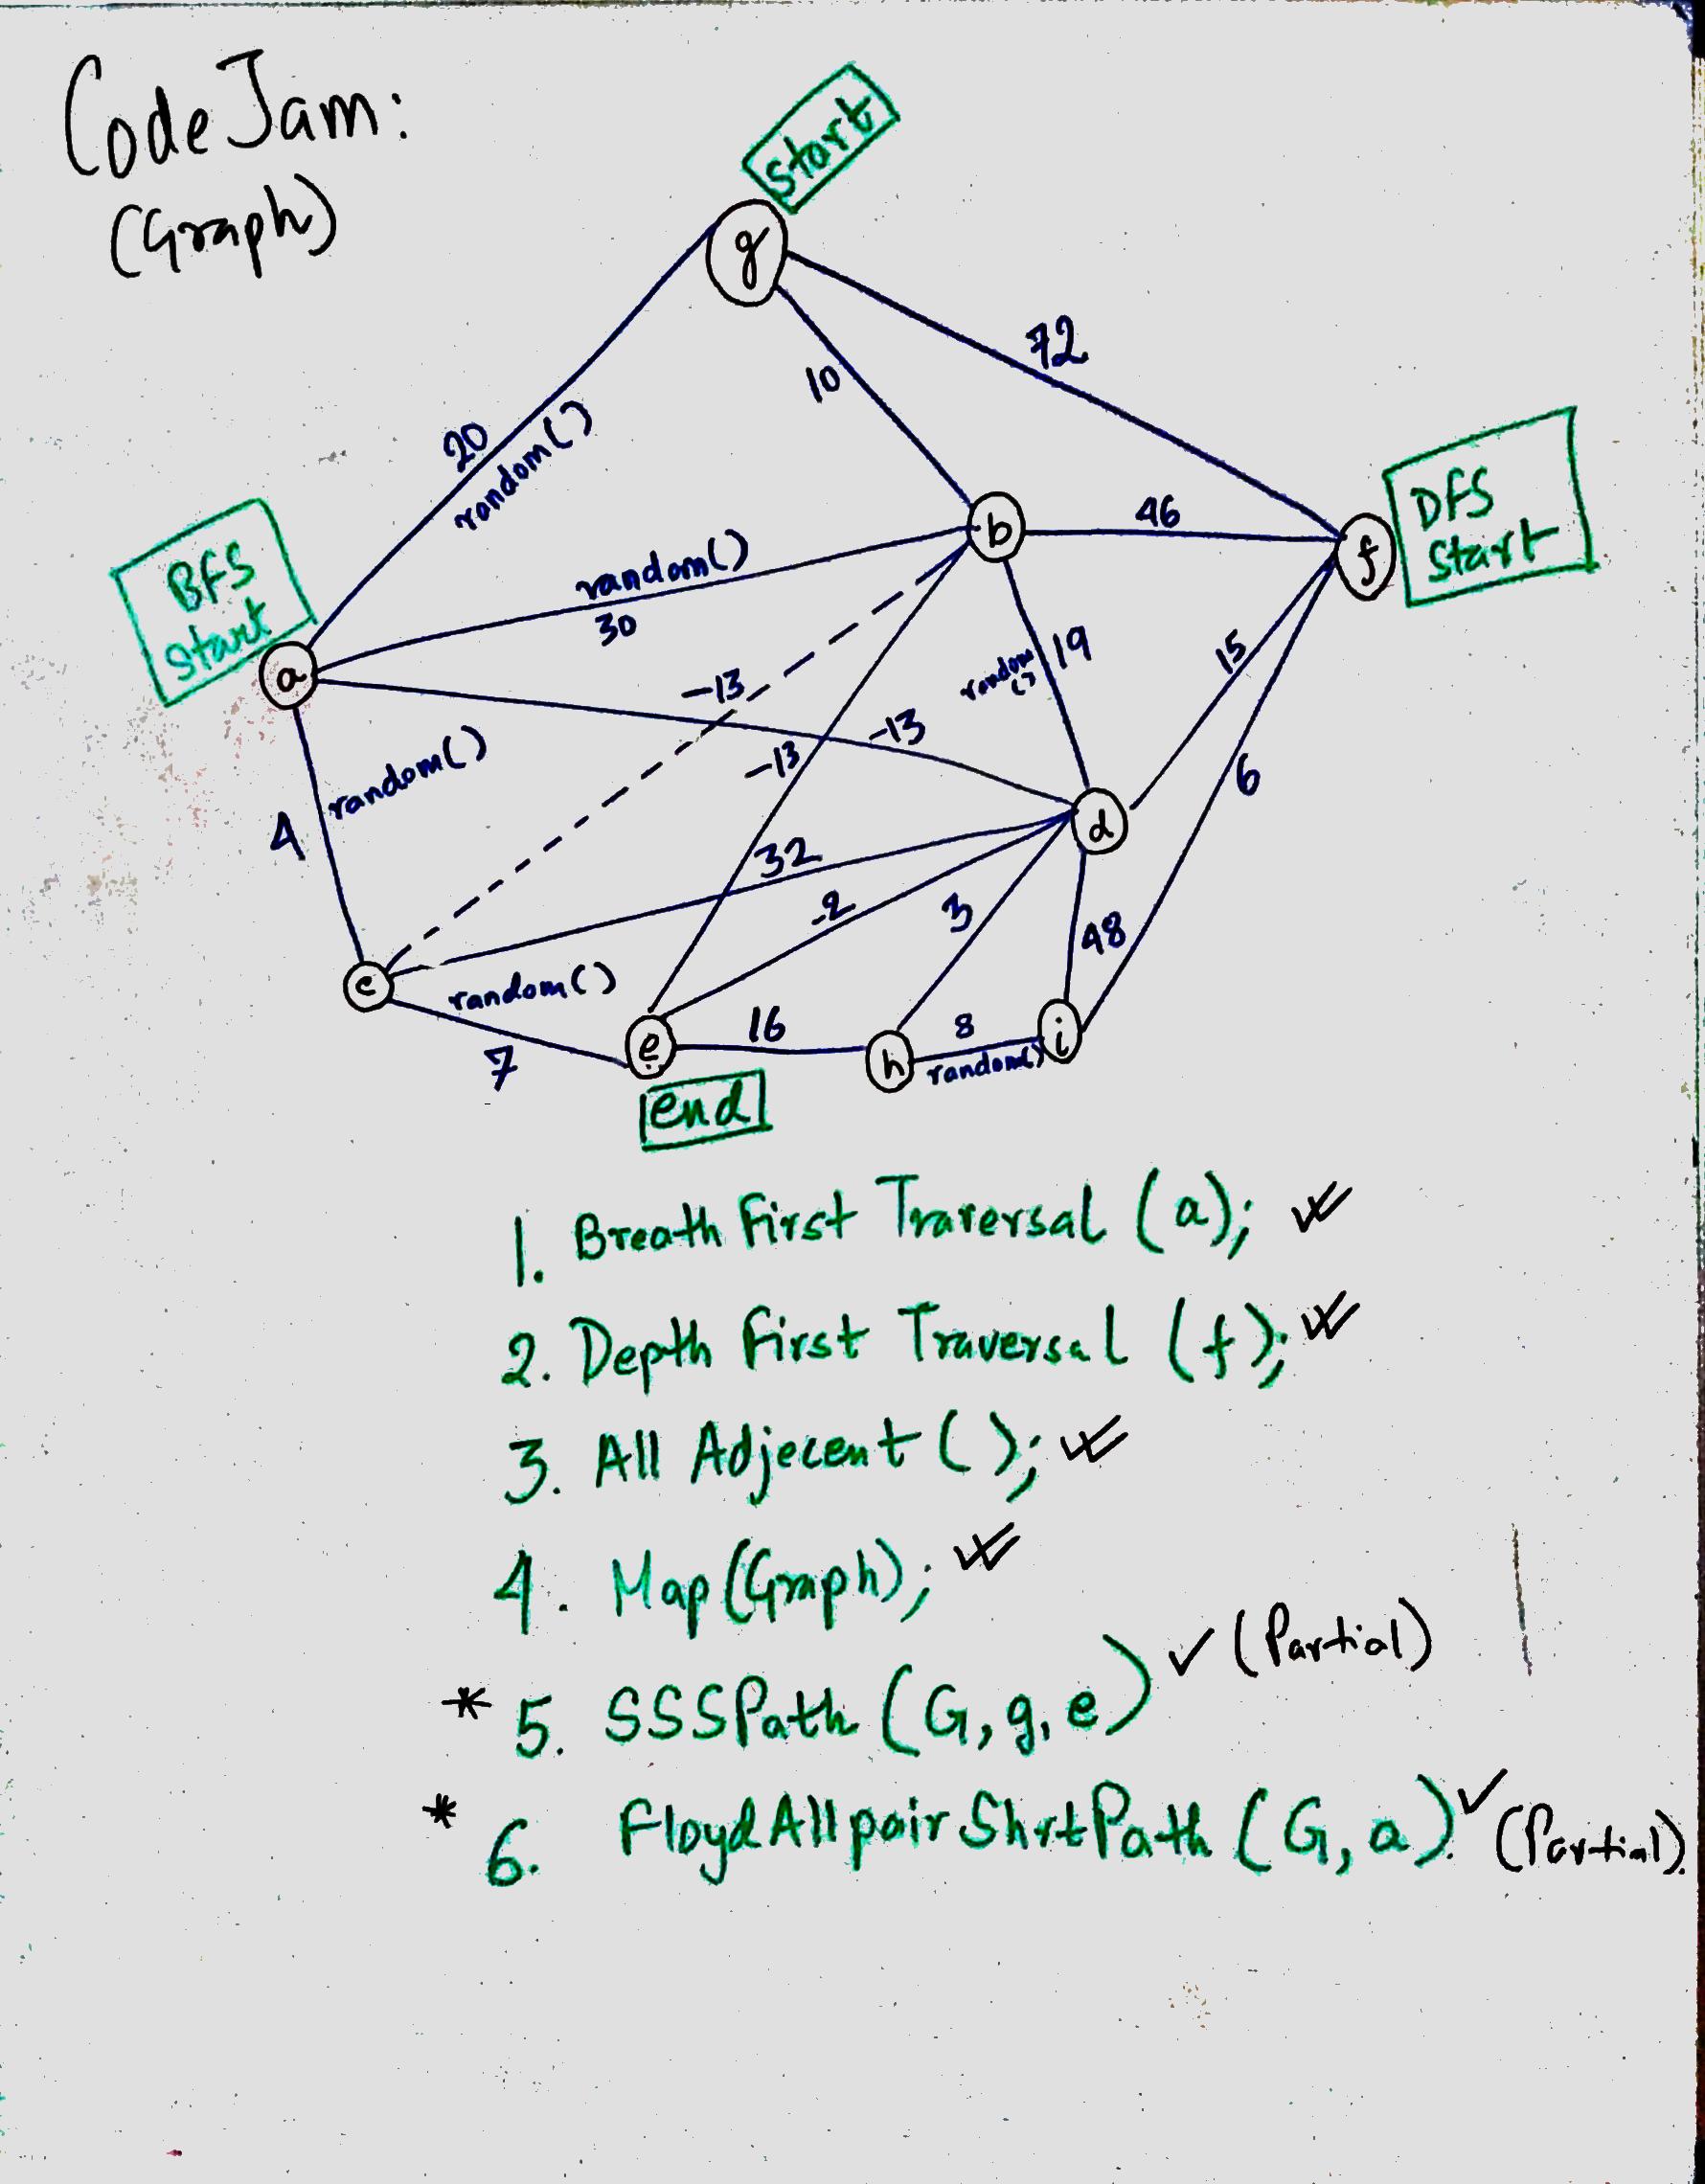 CodeJam:
(Graph)
Start
g
72
10
20
random()
BFS
Start
random()
30
b
46
f
DFS
Start
a
-13
-13
-13
random
()
19
15
6
random()
4
d
32
-2
3
48
c
random()
7
e
16
h
8
random()
i
end
1. Breath First Traversal (a);
2. Depth First Traversal (f);
3. All Adjecent ( );
4. Map(Graph);
* 5. SSSPath (G, g, e) (Partial)
* 6. FloydAllpairShrtPath (G, a). (Partial).